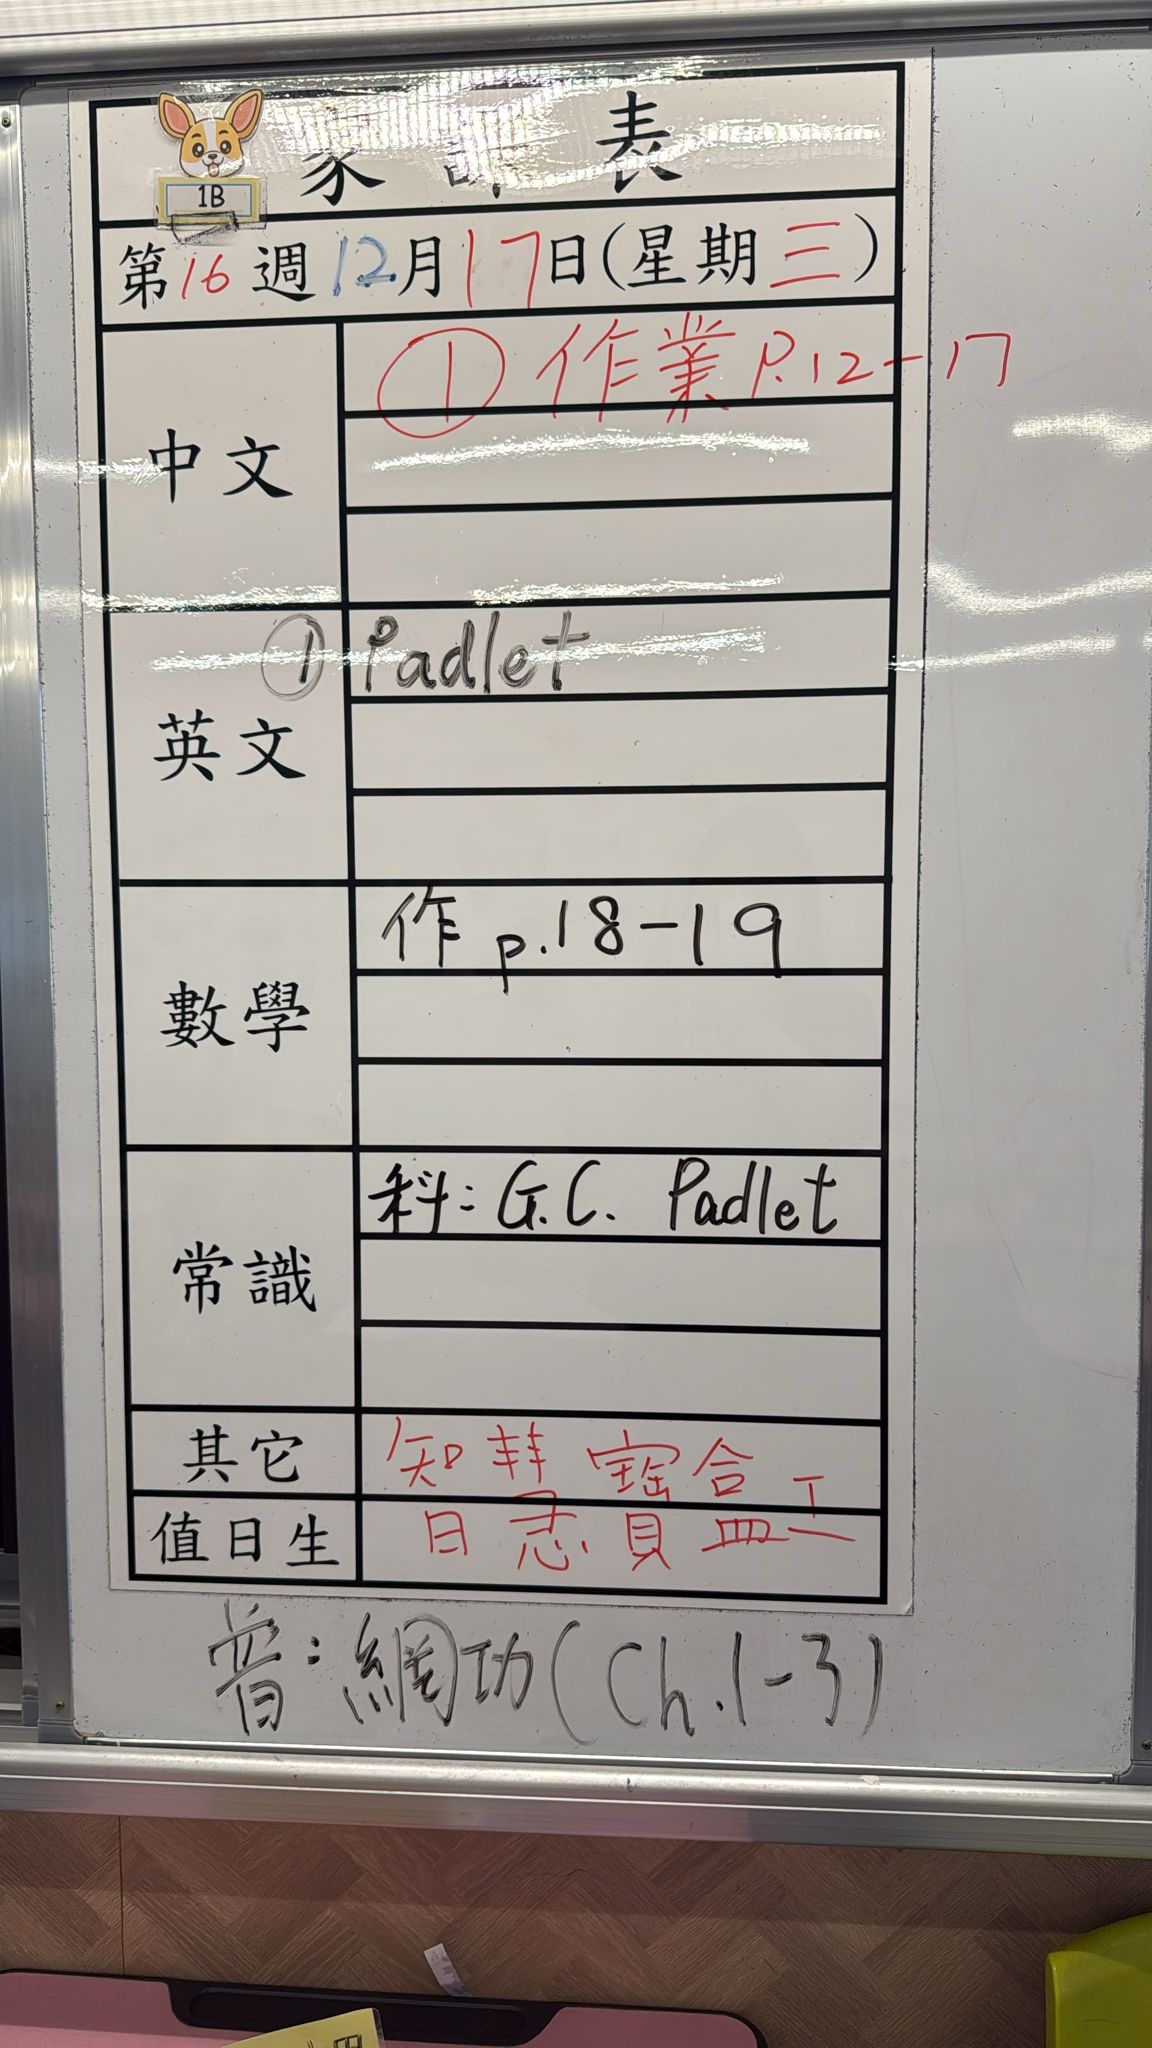 家課表
1B
第16週12月17日(星期三)
中文
① 作業 P.12-17
英文
① Padlet
數學
作 p.18-19
常識
科: G.C. Padlet
其它
值日生
普: 網功(Ch.1-3)